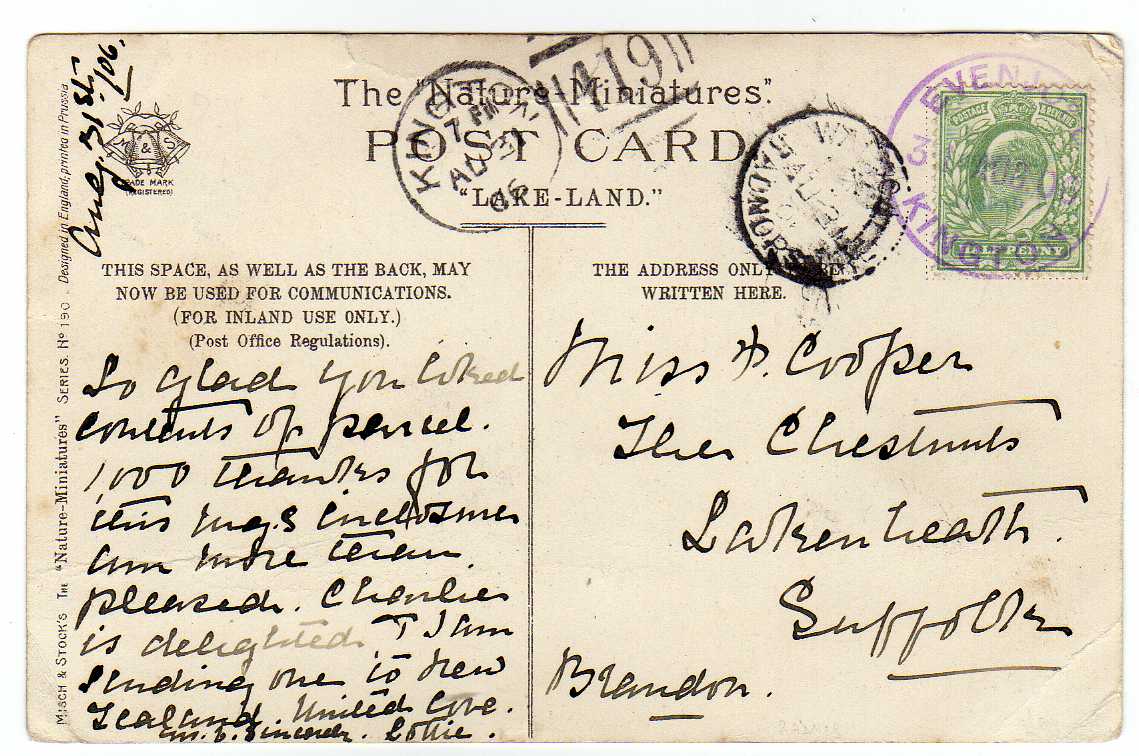 The "Nature-Miniatures".
POST CARD
"LAKE-LAND."
Aug. 31st/06.
M & S
TRADE MARK
(REGISTERED)
KINGTON
7 PM
AU 31
06
419
EVENJ
KINGTO
POSTAGE REVENUE
HALFPENNY
THIS SPACE, AS WELL AS THE BACK, MAY
NOW BE USED FOR COMMUNICATIONS.
(FOR INLAND USE ONLY.)
(Post Office Regulations).
THE ADDRESS ONLY
WRITTEN HERE.
So glad you liked
contents of parcel.
1,000 thanks for
this mg. & enclosures
am more than
pleased. Charlie
is delighted. I am
sending one to New
Zealand. United Love.
Sincerely. Lottie.
Miss F. Cooper
The Chestnuts
Lakenheath.
Suffolk
Brandon.
MISCH & STOCK'S THE "Nature-Miniatures" SERIES. No 190. Designed in England; printed in Prussia